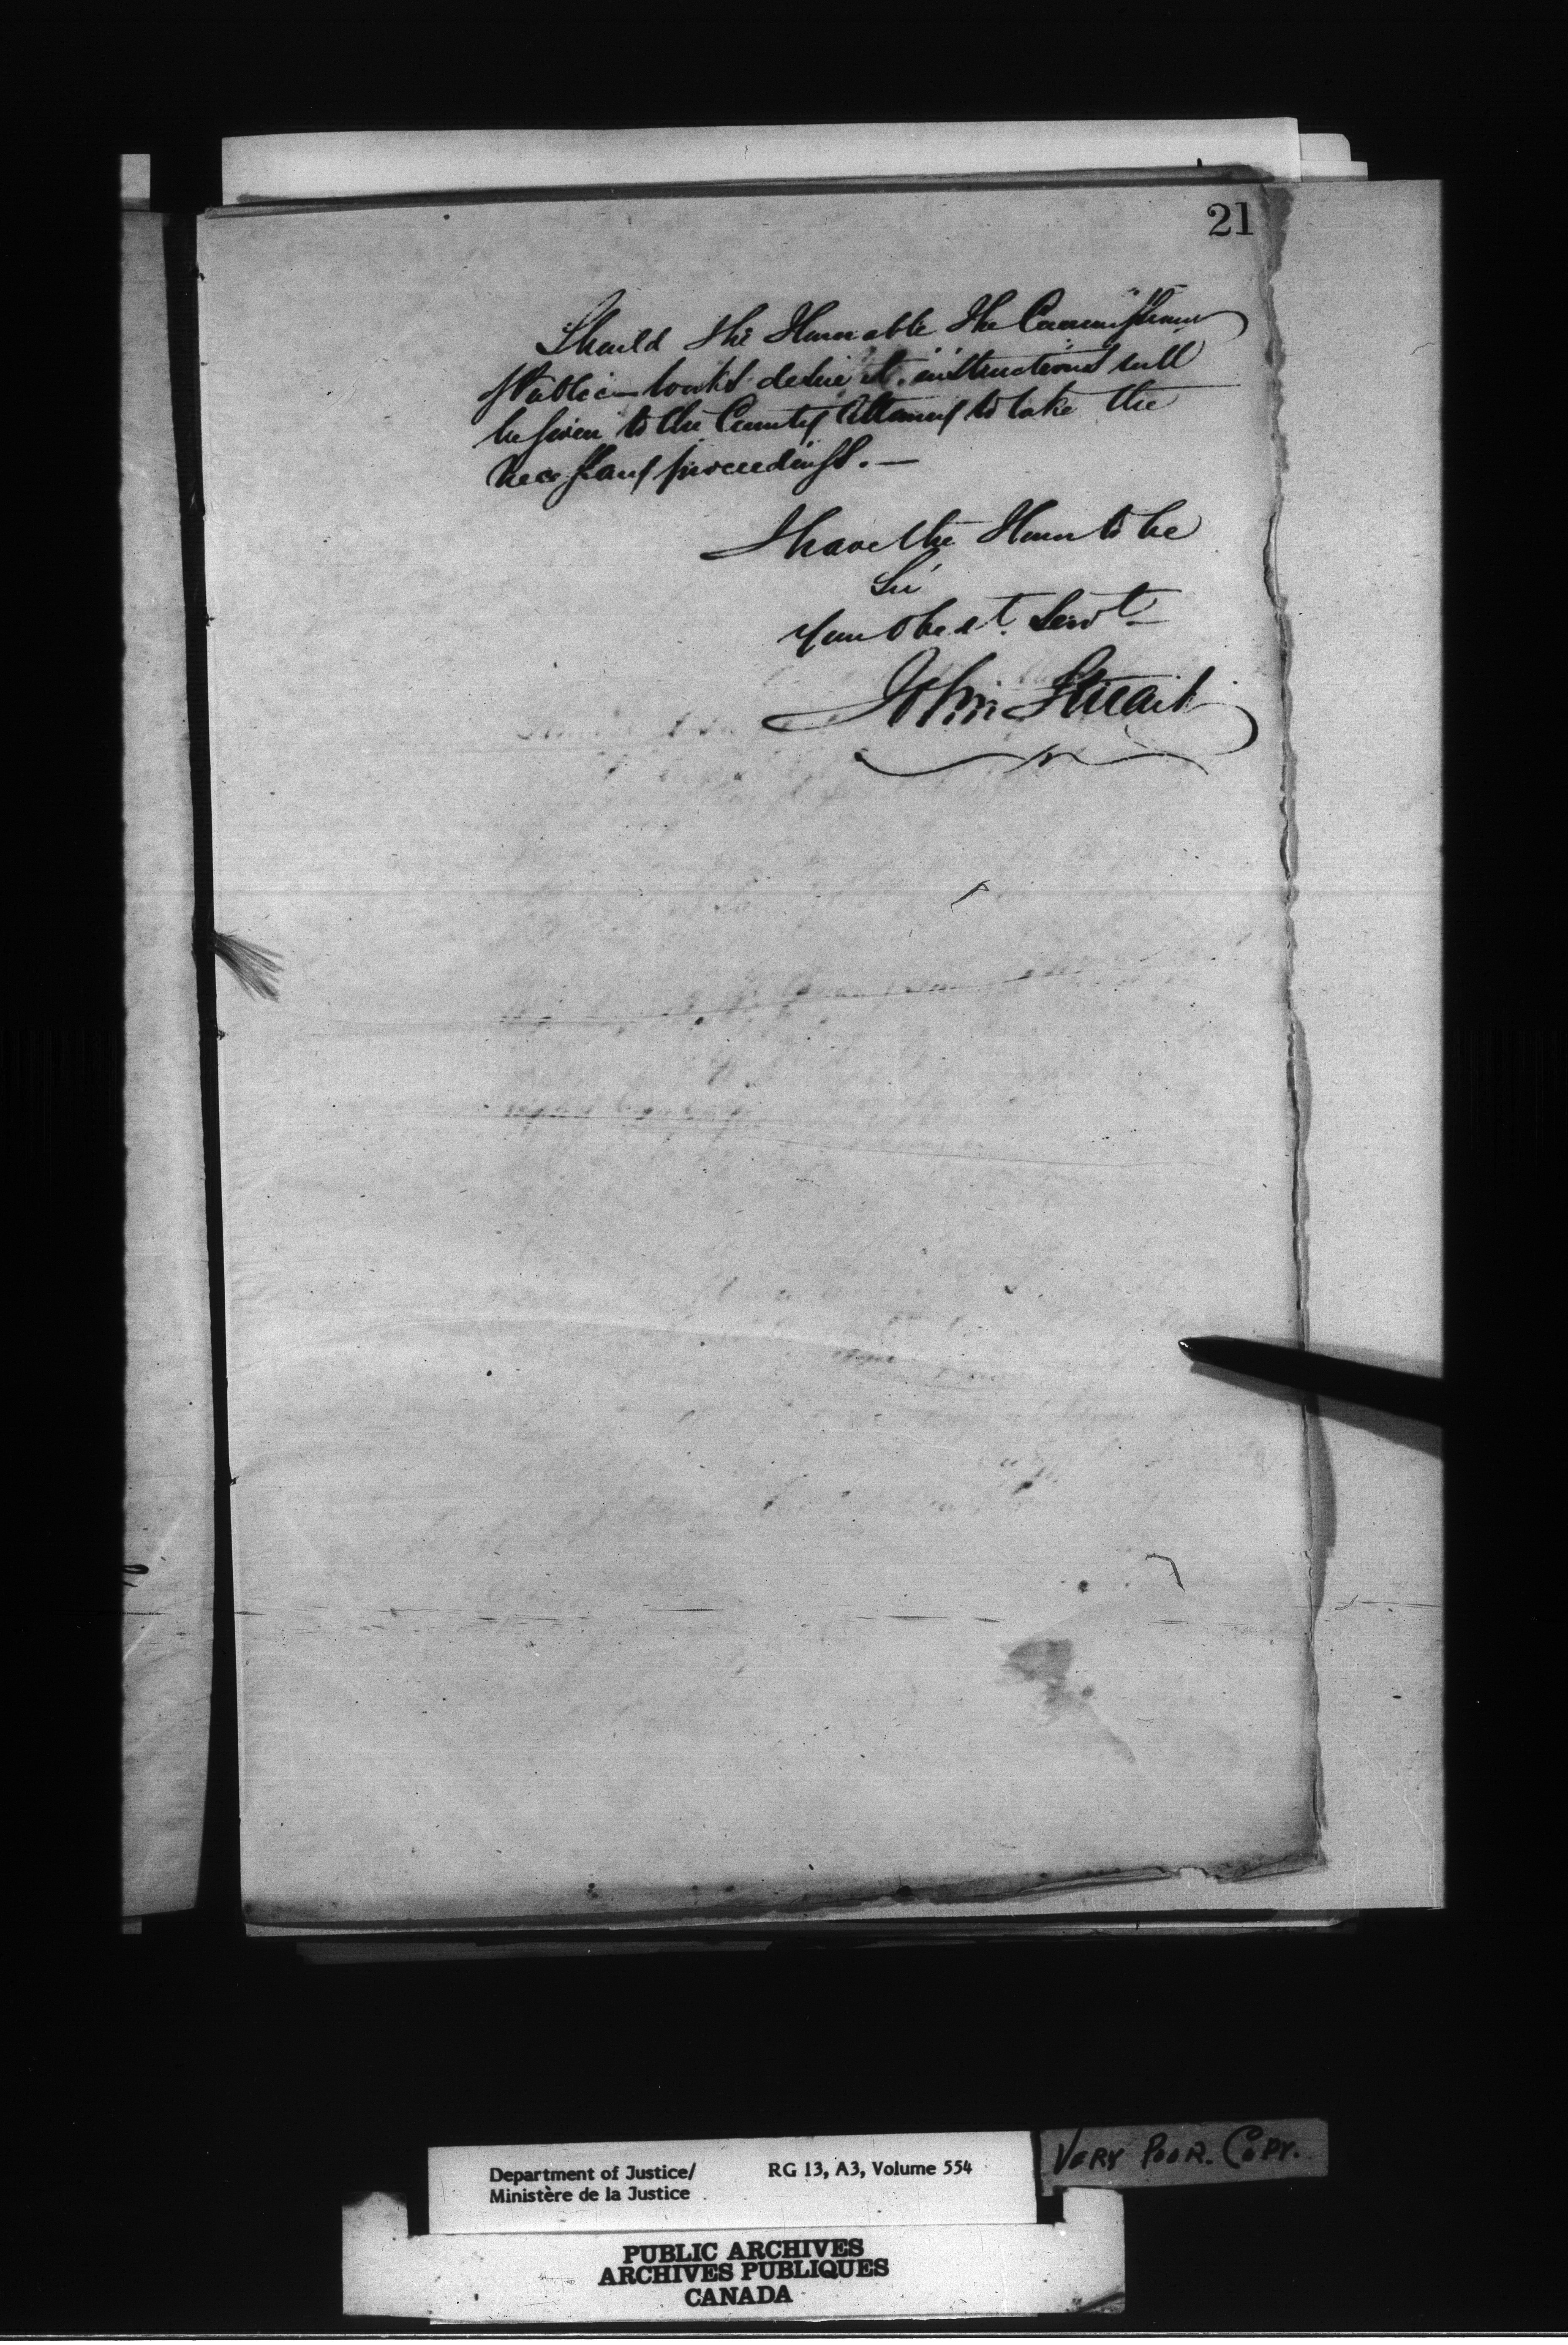 21
Should the Honorable The Commissioner
of Public Works desire it, instructions will
be given to the County Attorney to take the
necessary proceedings. —
I have the Honor to be
Sir
Your Obest. Servt.
John Stuart
Department of Justice/ RG 13, A3, Volume 554
Ministère de la Justice
VERY POOR. COPY.
PUBLIC ARCHIVES
ARCHIVES PUBLIQUES
CANADA